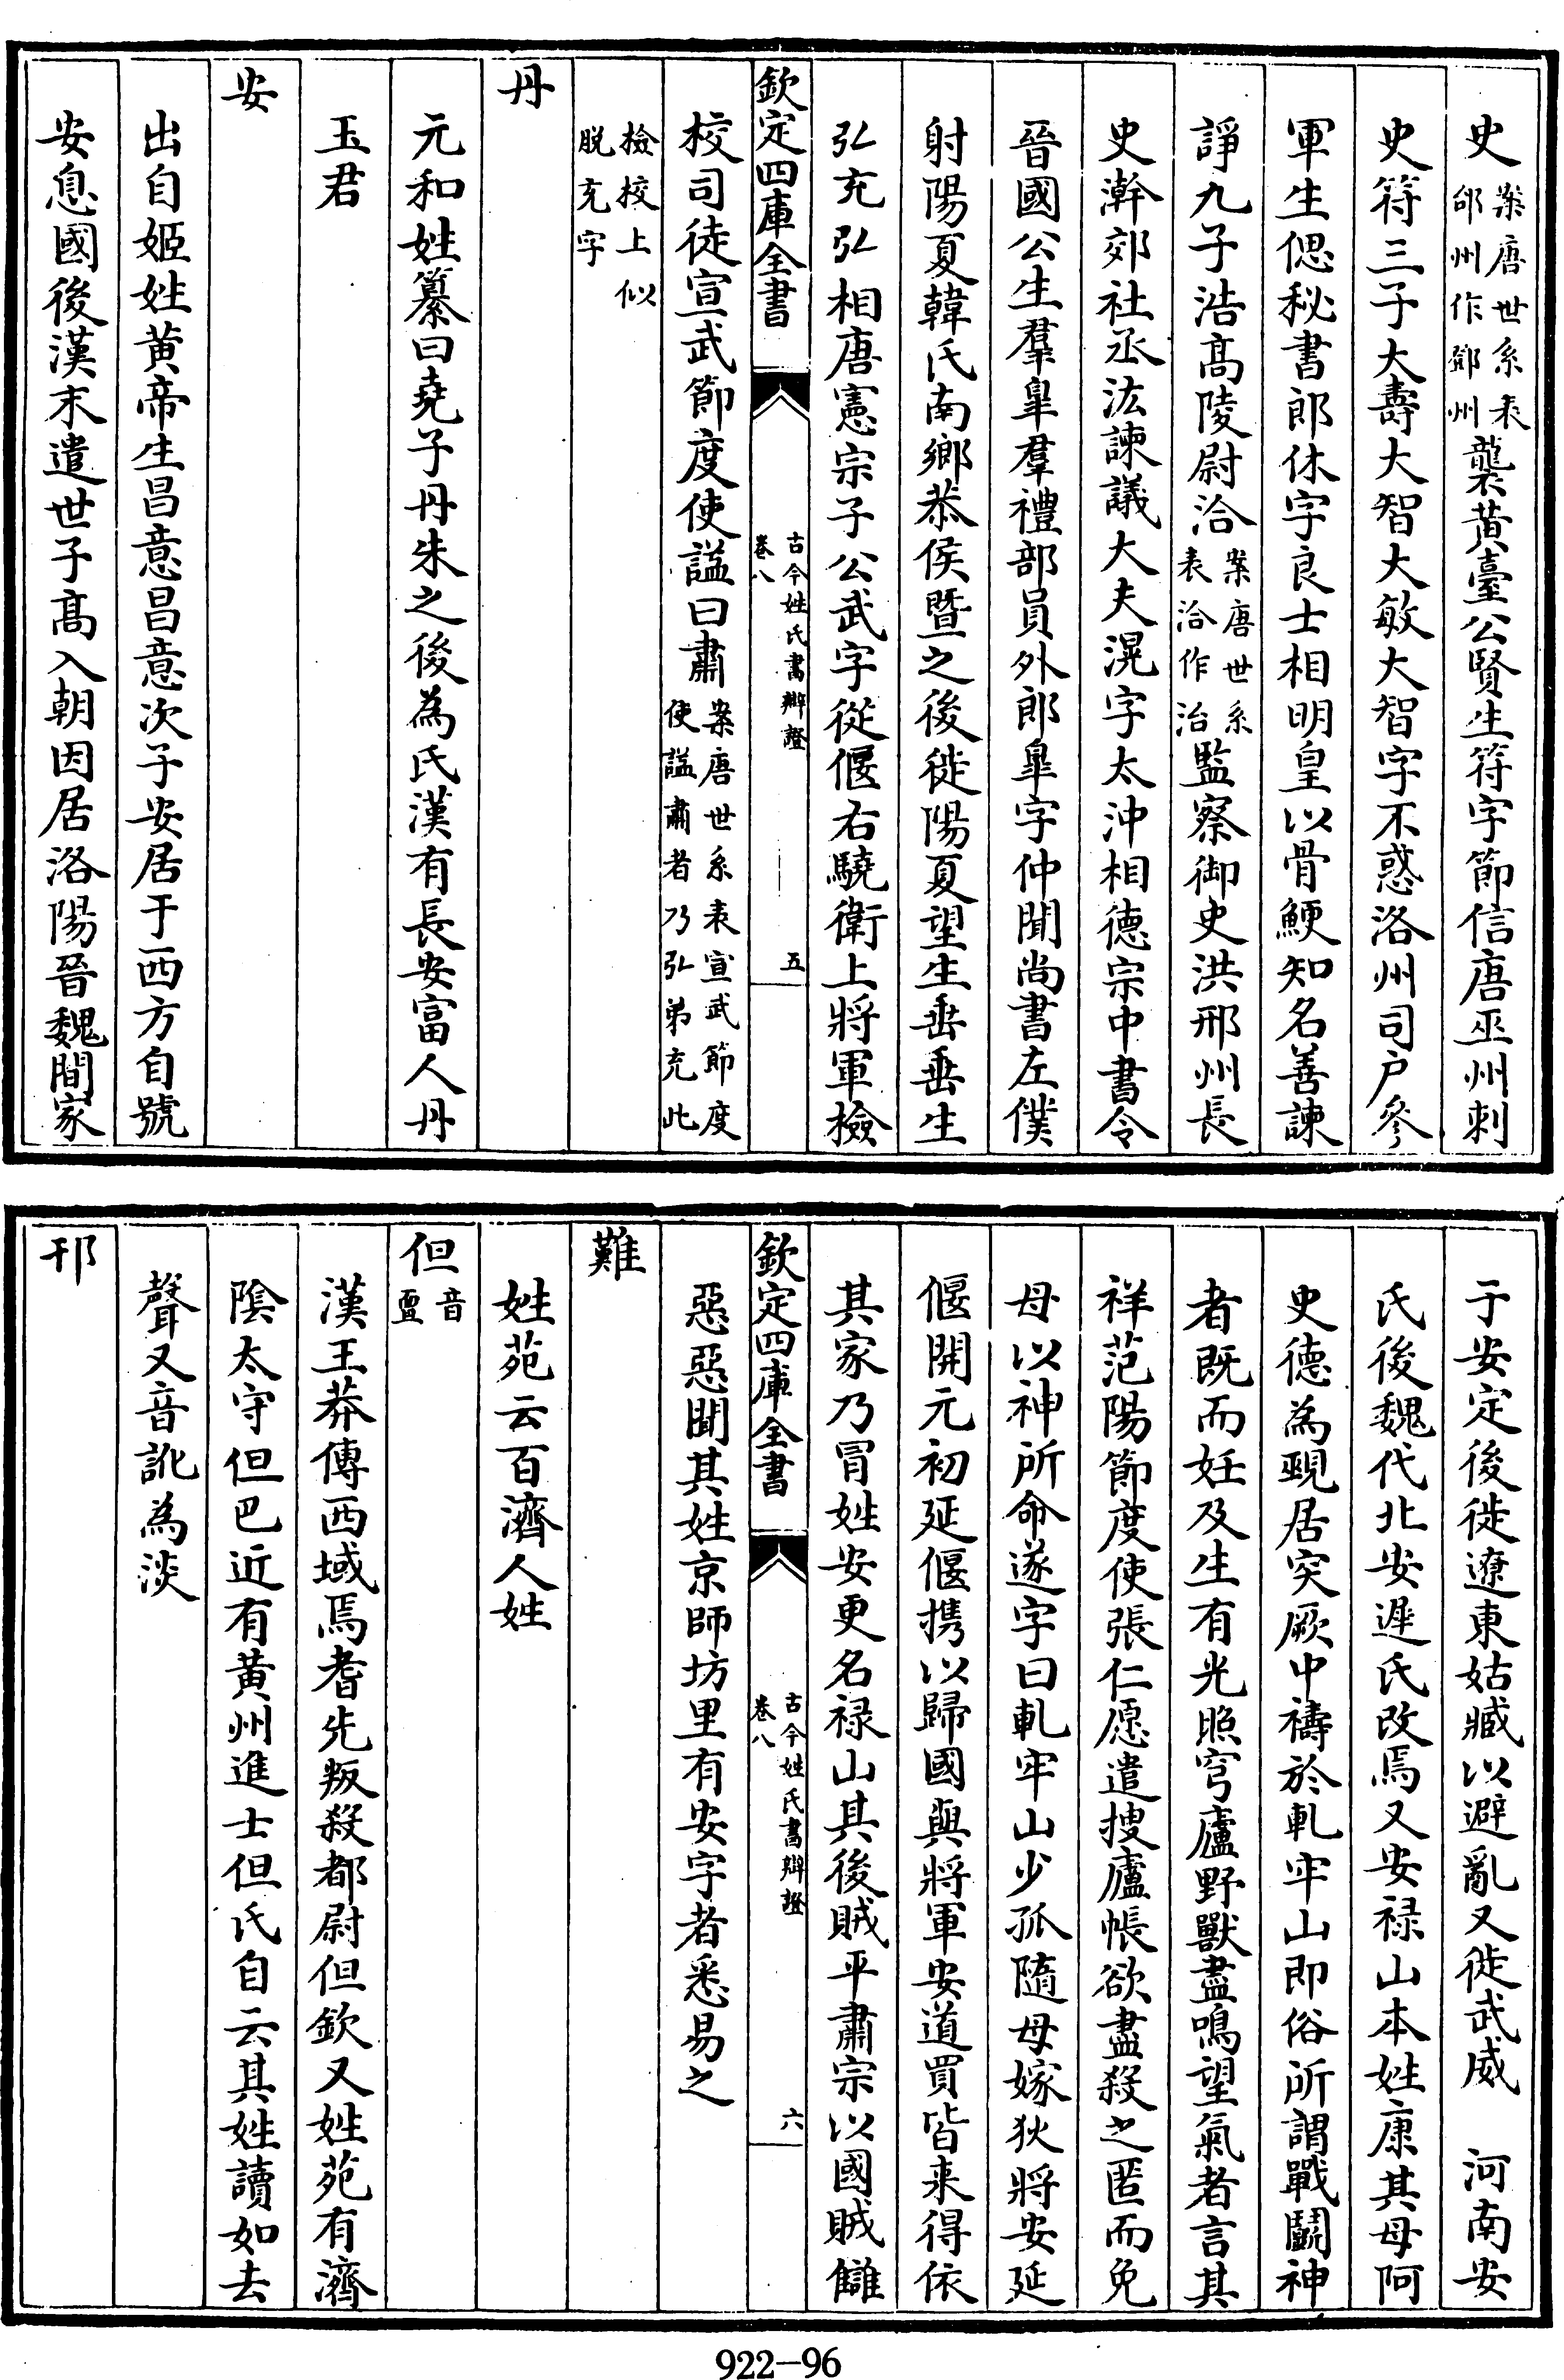 史案唐世系表郃州作鄧州襲黃臺公賢生符字節信唐巫州刺
史符三子大壽大智大敏大智字不惑洛州司户參
軍生偲秘書郎休字良士相明皇以骨鯁知名善諫
諍九子浩髙陵尉洽案唐世系表洽作治監察御史洪邢州長
史澣郊社丞汯諫議大夫滉字太沖相德宗中書令
晉國公生羣臯羣禮部員外郎臯字仲聞尚書左僕
射陽夏韓氏南鄉恭侯暨之後徙陽夏望生垂垂生
弘充弘相唐憲宗子公武字從偃右驍衛上將軍檢
欽定四庫全書
古今姓氏書辯證
卷八
五
校司徒宣武節度使謚曰肅案唐世系表宣武節度使謚肅者乃弘弟充此
檢校上似脱充字
丹
元和姓纂曰堯子丹朱之後為氏漢有長安富人丹
玉君
安
出自姬姓黄帝生昌意昌意次子安居于西方自號
安息國後漢末遣世子髙入朝因居洛陽晉魏間家
于安定後徙遼東姑臧以避亂又徙武威 河南安
氏後魏代北安遲氏改焉又安禄山本姓康其母阿
史德為覡居突厥中禱於軋牢山即俗所謂戰鬭神
者既而妊及生有光照穹廬野獸盡鳴望氣者言其
祥范陽節度使張仁愿遣搜廬帳欲盡殺之匿而免
母以神所命遂字曰軋牢山少孤隨母嫁狄將安延
偃開元初延偃携以歸國與將軍安道買皆来得依
其家乃冒姓安更名禄山其後賊平肅宗以國賊讎
欽定四庫全書
古今姓氏書辯證
卷八
六
惡惡聞其姓京師坊里有安字者悉易之
難
姓苑云百濟人姓
但音亶
漢王莽傳西域焉耆先叛殺都尉但欽又姓苑有濟
陰太守但巴近有黄州進士但氏自云其姓讀如去
聲又音訛為淡
邗
922-96